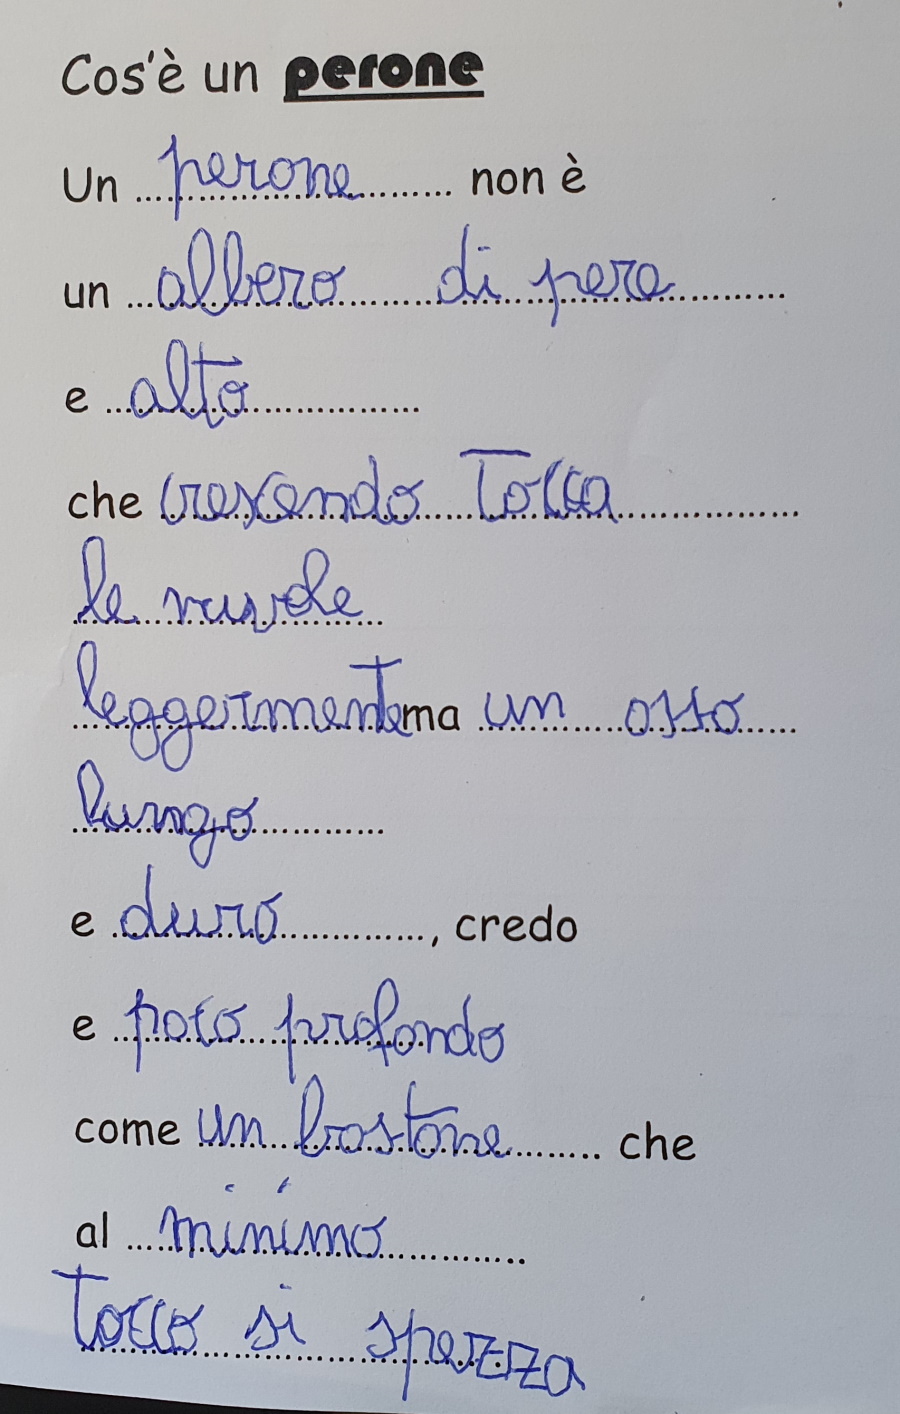 Cos'è un perone
Un perone non è
un albero di pere
e alto
che crescendo Tocca
le nuvole
leggermente ma un osso
lungo
e duro, credo
e poco profondo
come un bastone che
al minimo
Tocco si spezza